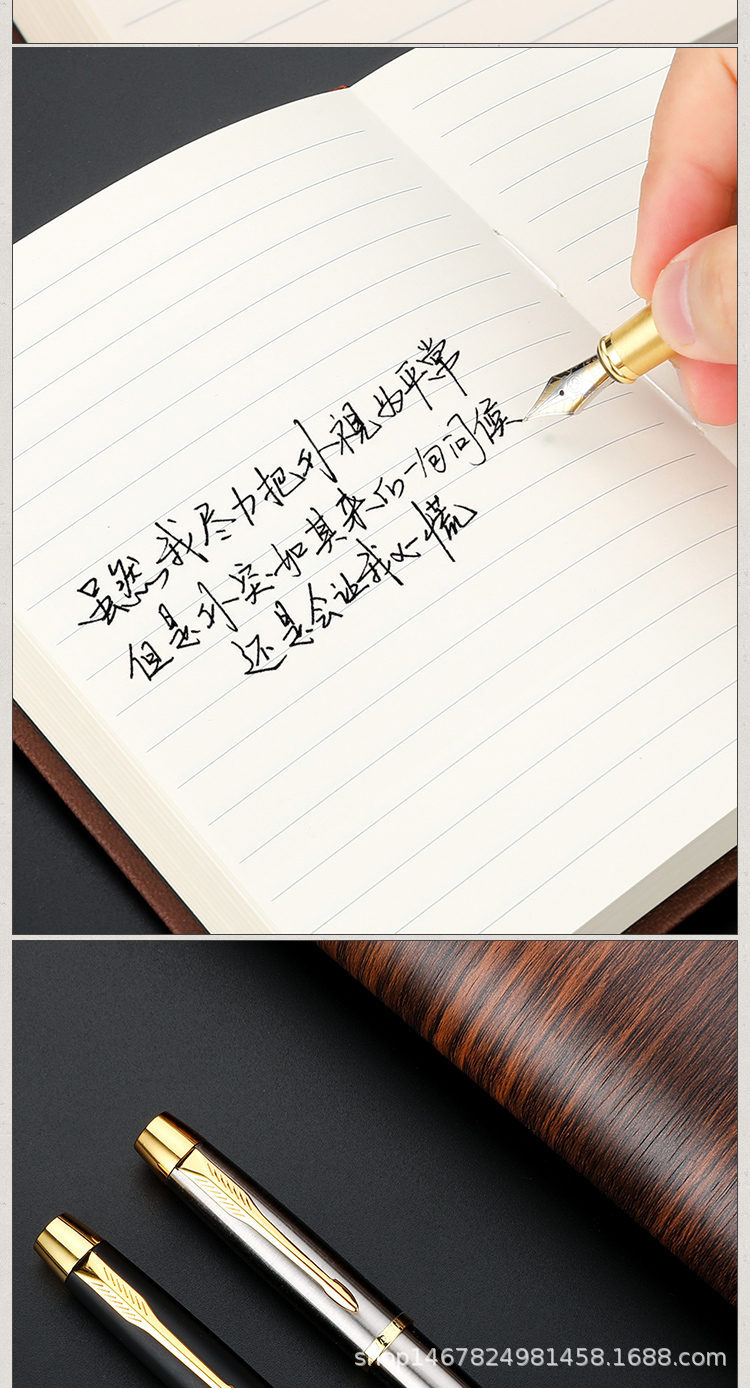 虽然我尽力把你视为平常
但是你突如其来的一句问候
还是会让我心慌
shop1467824981458.1688.com